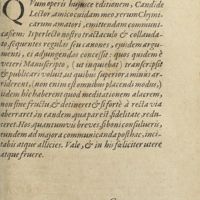 QVum operis hujusce editionem, Candide
Lector amico cuidam meo rerum Chymi-
carum amatori, emittendam communi-
cassem: Is perlecto nostro tractaculo & collauda-
to, sequentes regulas seu canones, ejusdem argu-
menti, ei adjungendas concessit: quos quidem è
veteri Manuscripto, (ut inquebat) transcripsit
& publicari voluit, ut quibus superior a minus ar-
riderent, (non enim est omnibus placendi modus,)
iidem hic haberent quod meditationem alacrem,
non sine fructu, & detineret & si fortè à recta via
aberraret in eandem, qua par est fidelitate redu-
ceret. Hos, quantumvis breves, si boni consulueris,
eundem ad majora communicanda posthac, inci-
tabis atque allicies. Vale, & in his feliciter utere
atque fruere.